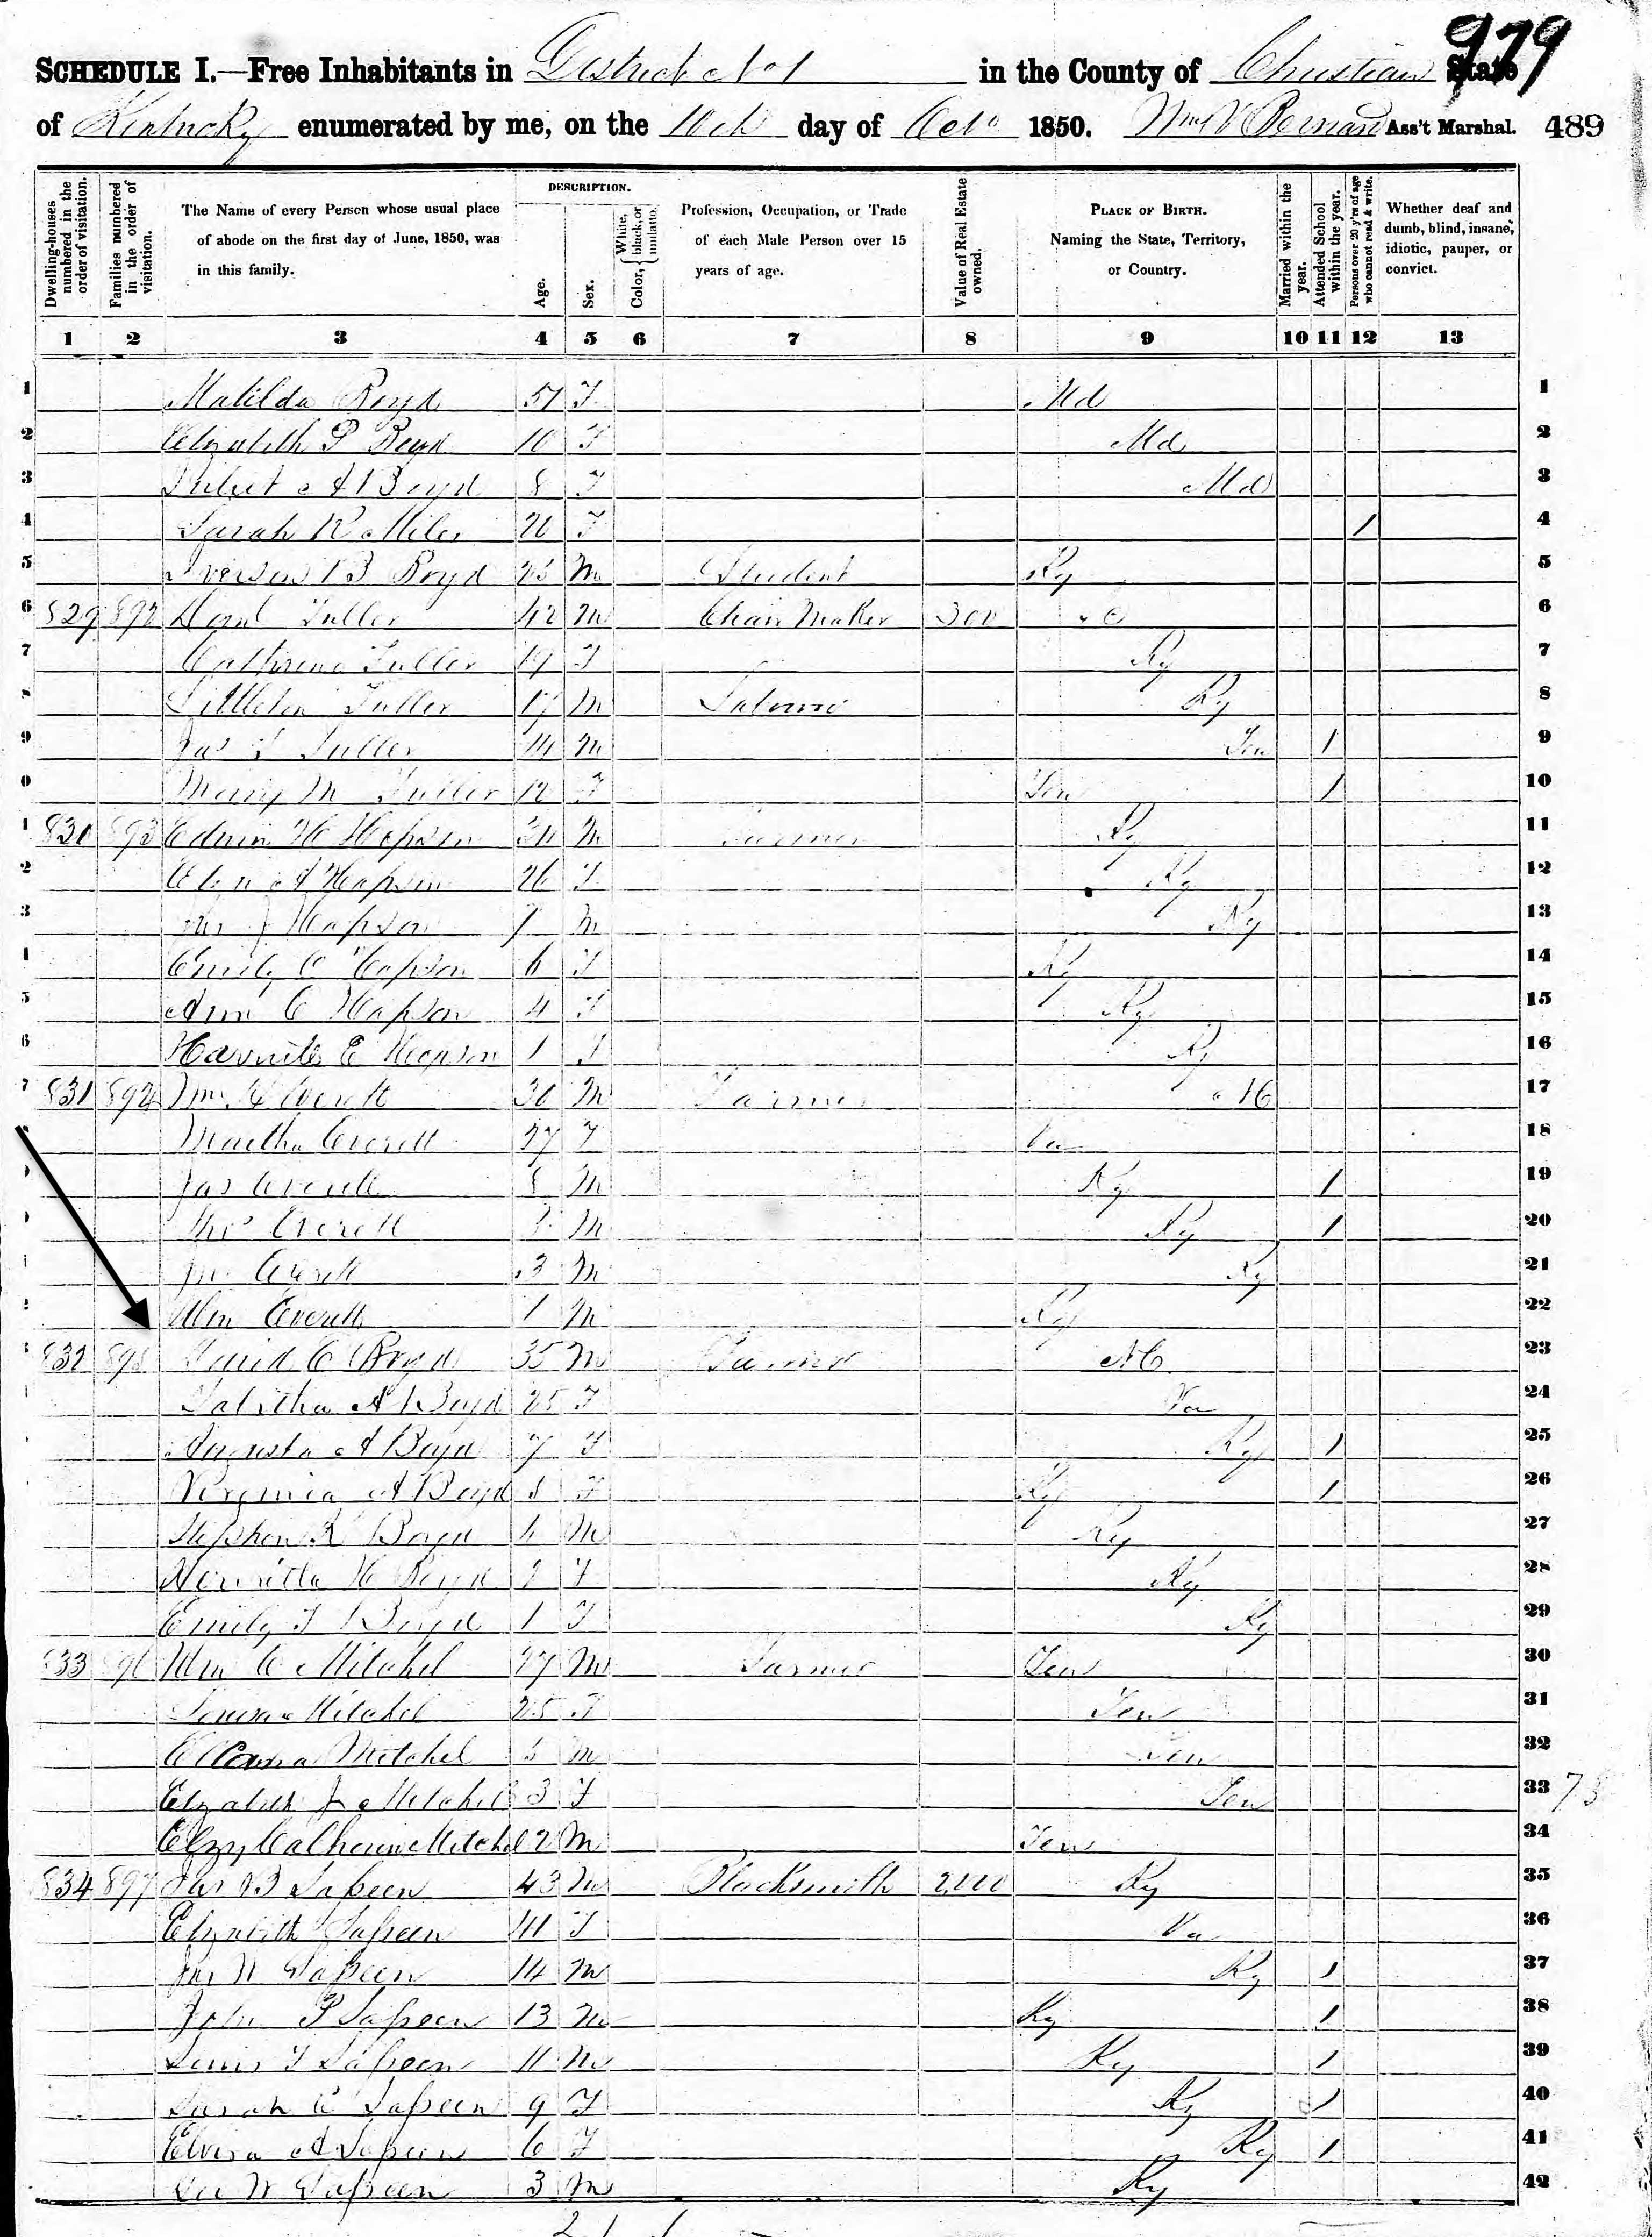 979
SCHEDULE I.—Free Inhabitants in District No 1 in the County of Christian State
of Kentucky enumerated by me, on the 10th day of Octo 1850. Wm V Bernard Ass't Marshal. 489
Dwelling-houses numbered in the order of visitation.
Families numbered in the order of visitation.
The Name of every Person whose usual place of abode on the first day of June, 1850, was in this family.
DESCRIPTION.
Age.
Sex.
Color, White, black, or mulatto.
Profession, Occupation, or Trade of each Male Person over 15 years of age.
Value of Real Estate owned.
PLACE OF BIRTH. Naming the State, Territory, or Country.
Married within the year.
Attended School within the year.
Persons over 20 y'rs of age who cannot read & write.
Whether deaf and dumb, blind, insane, idiotic, pauper, or convict.
1 2 3 4 5 6 7 8 9 10 11 12 13
1 Matilda Boyd 51 F Md 1
2 Elizabeth P Boyd 10 F Md 2
3 A Boyd 8 F Md 3
4 Sarah R Miles F / 4
5 Iverson B Boyd M Student Ky 5
6 829 892 Fuller 42 M Chair Maker 300 6
7 Catherine Fuller 19 F Ky 7
8 Littleton Fuller 17 M Ky 8
9 Jas Fuller 14 M Ten 1 9
0 Mary M Fuller 12 F Ten 1 10
1 830 893 Edwin H Hopson M Farmer Ky 11
2 A Hopson 26 F Ky 12
3 J Hopson 7 M Ky 13
Emily C Hopson 6 F Ky 14
5 Ann C Hopson 4 F Ky 15
6 E Hopson 1 F Ky 16
7 831 894 Wm Everett 30 M Farmer 17
Martha Everett 27 F Va 18
Jas Everett 8 M Ky 1 19
Thos Everett M Ky 1 20
Jno Everett 3 M Ky 21
Wm Everett 1 M Ky 22
832 895 David C Boyd 35 M Farmer NC 23
Tabitha A Boyd 25 F Va 24
Augusta A Boyd 7 F Ky 1 25
Virginia A Boyd F Ky 1 26
Stephen R Boyd 4 M Ky 27
Henrietta H Boyd 2 F Ky 28
Emily T Boyd 1 F Ky 29
833 896 Wm C Mitchel 27 M Farmer Ten 30
Louisa Mitchel 25 F Ten 31
Mitchel 5 M Ten 32
Elizabeth J Mitchel 3 F Ten 33 78
Elzy Calhoun Mitchel 2 M Ten 34
834 897 Jas B Saseen 43 M Blacksmith 2,000 Ky 35
Elizabeth Saseen 41 F Va 36
Jas W Saseen 14 M Ky 1 37
John P Saseen 13 M Ky 1 38
Lewis T Saseen 11 M Ky 1 39
Sarah C Saseen 9 F Ky 1 40
Elvira A Saseen 6 F Ky 1 41
Geo W Saseen 3 M Ky 42